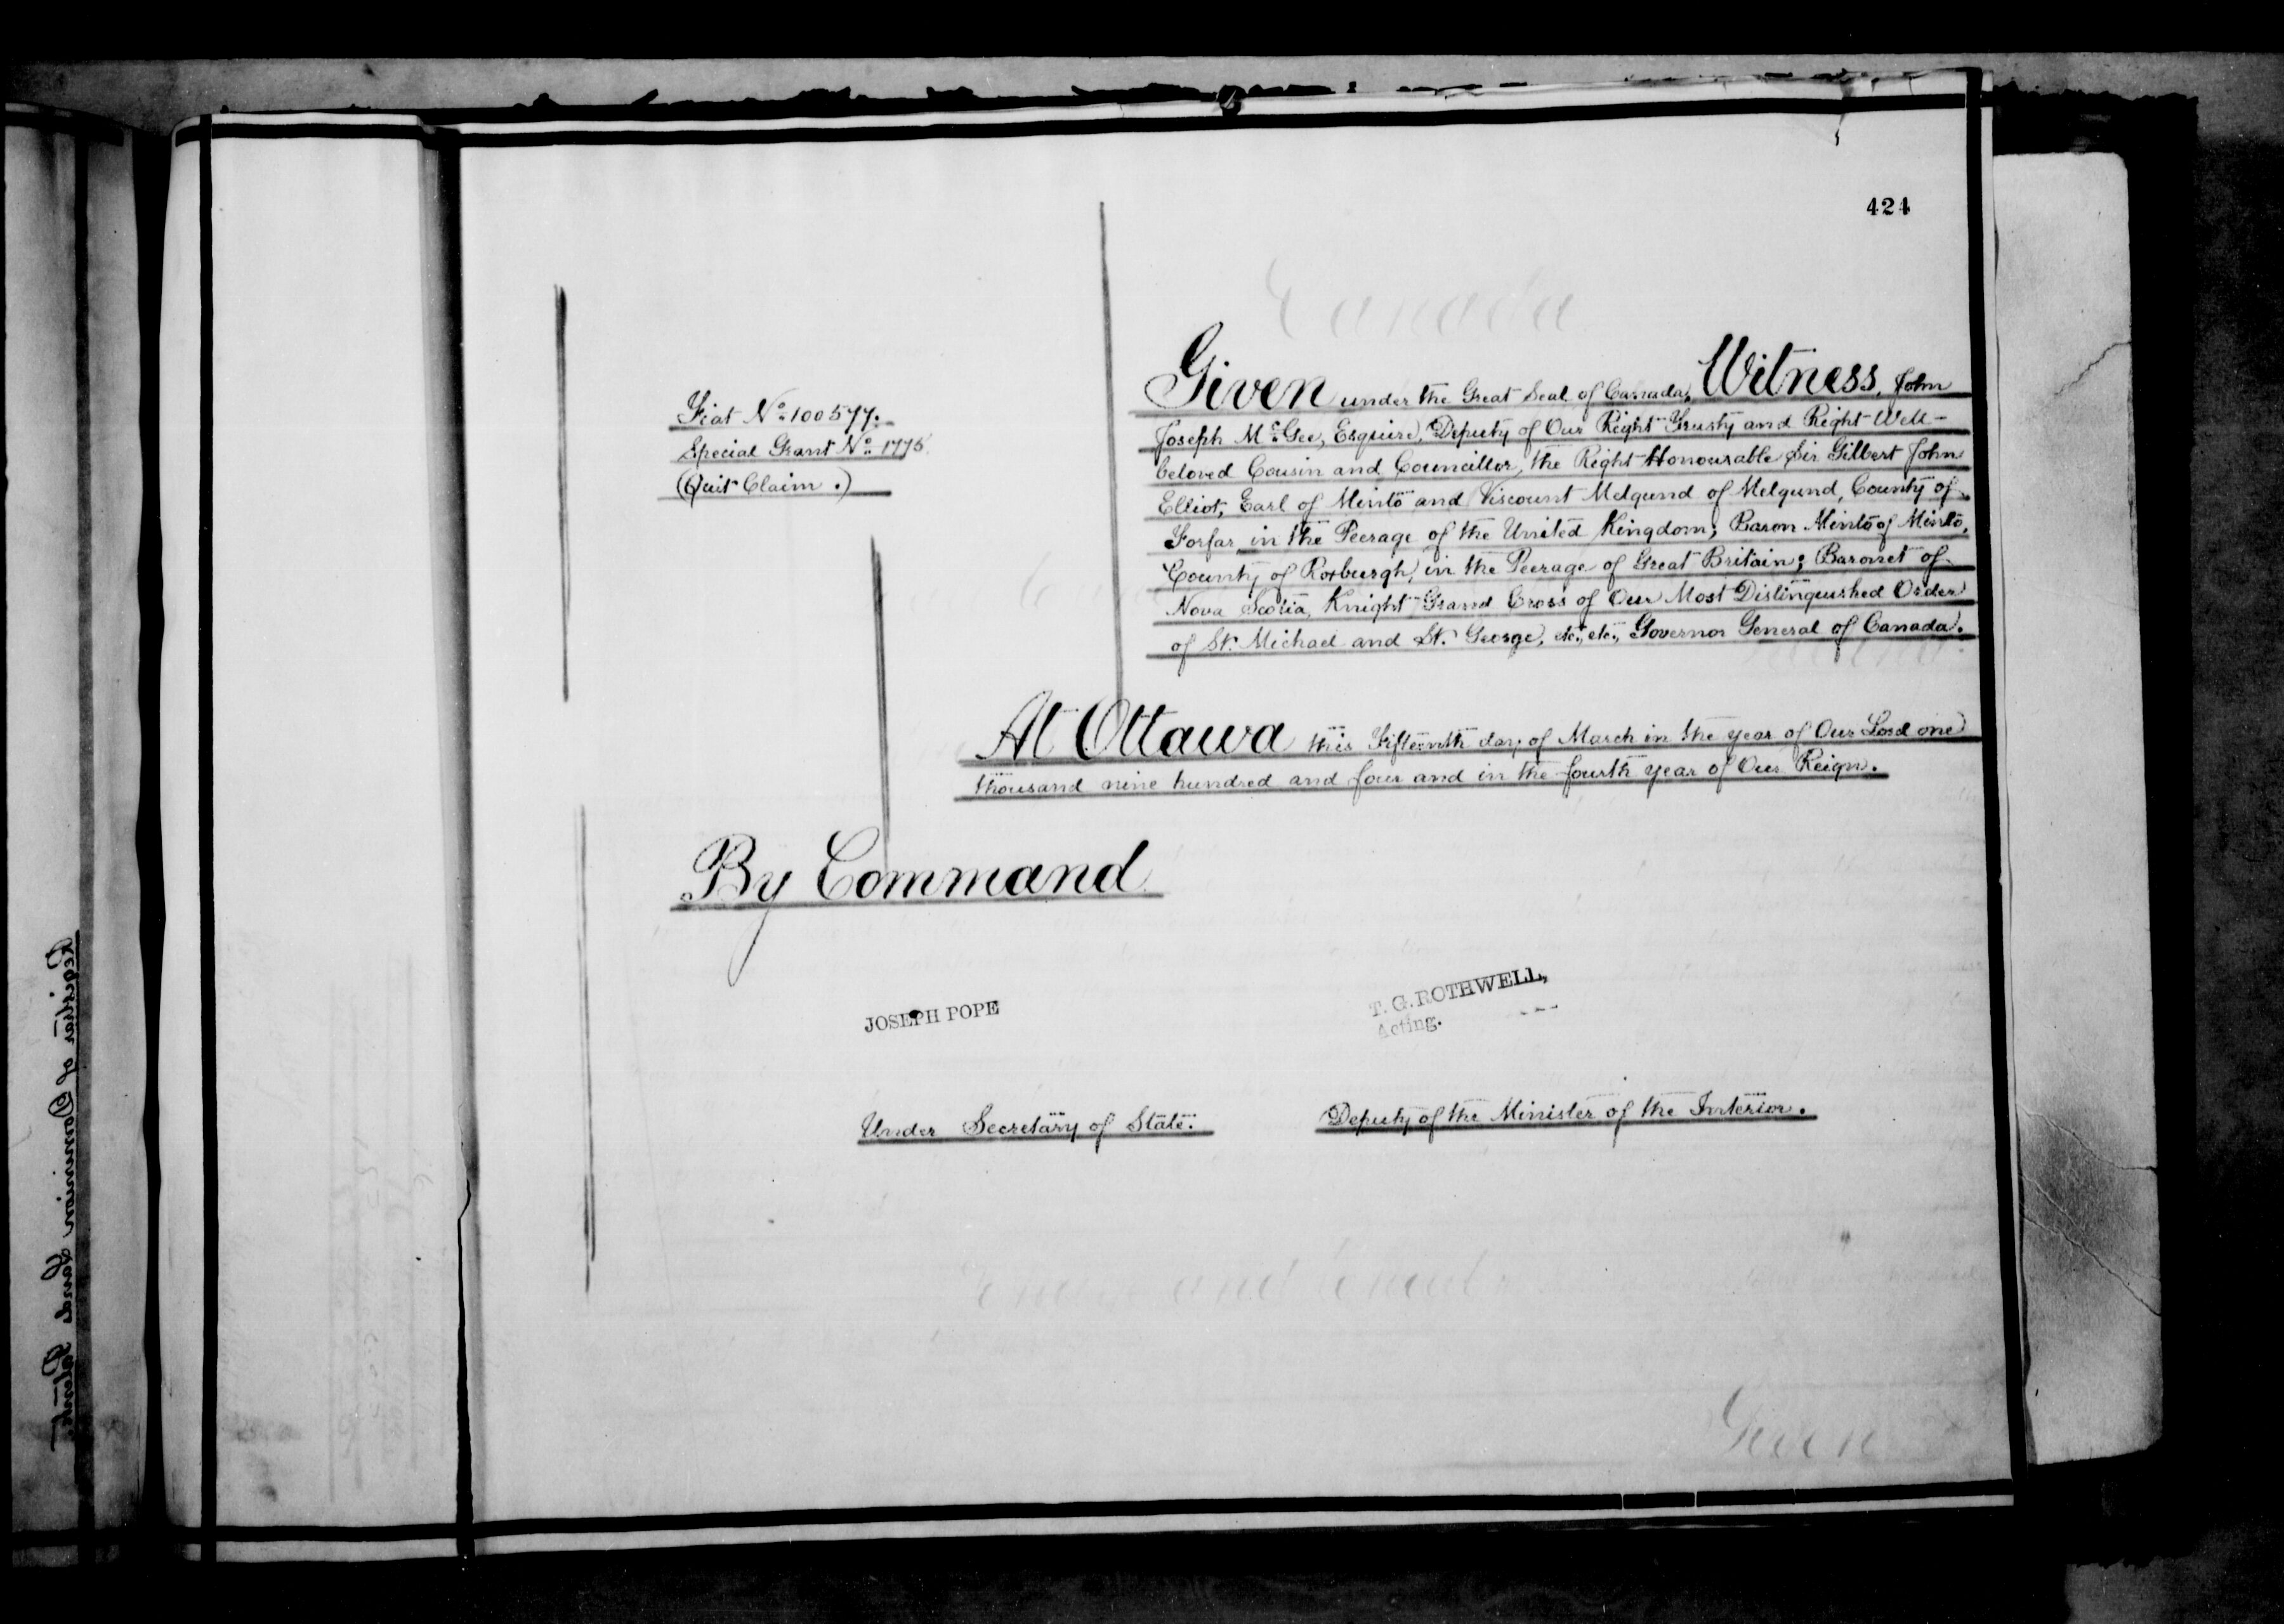 424
Canada
Given under the Great Seal of Canada, Witness, John
Joseph McGee, Esquire, Deputy of Our Right Trusty and Right Well-
beloved Cousin and Councillor, the Right Honourable Sir Gilbert John
Elliot, Earl of Minto and Viscount Melgund of Melgund, County of
Forfar, in the Peerage of the United Kingdom; Baron Minto of Minto,
County of Roxburgh, in the Peerage of Great Britain; Baronet of
Nova Scotia, Knight Grand Cross of Our Most Distinguished Order
of St. Michael and St. George, etc., etc., Governor General of Canada.
Fiat No 100577.
Special Grant No 1775.
(Quit Claim.)
At Ottawa this Fifteenth day of March in the year of Our Lord one
thousand nine hundred and four and in the fourth year of Our Reign.
By Command
JOSEPH POPE
T. G. ROTHWELL,
Acting.
Under Secretary of State.
Deputy of the Minister of the Interior.
Given
Registrar of Dominion Lands Patents.